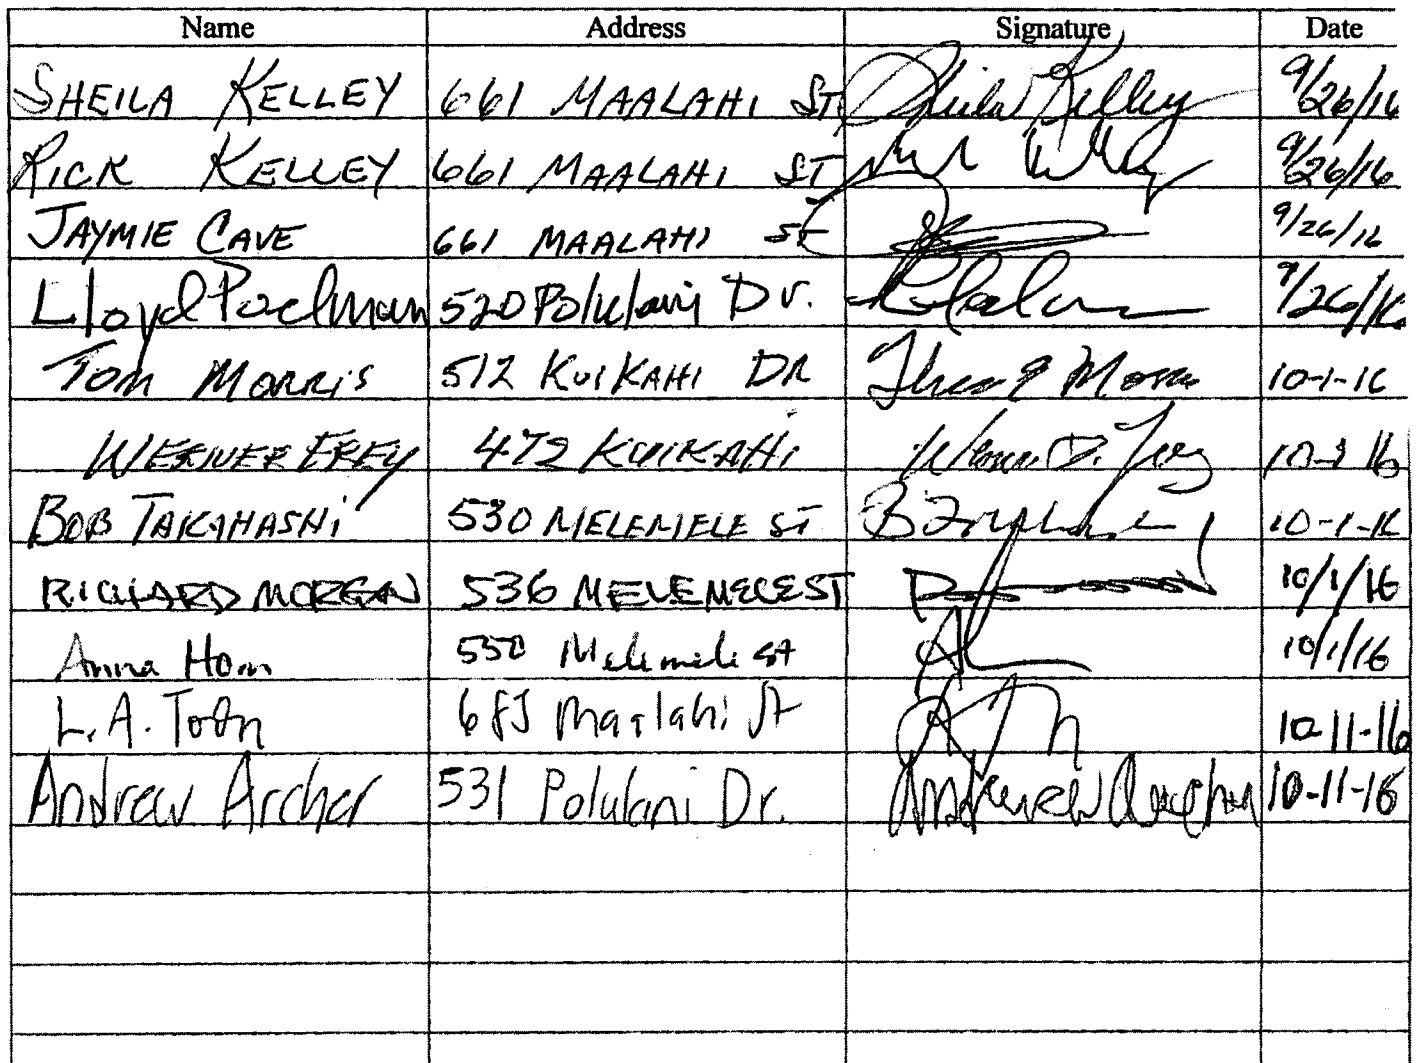 Name Address Signature Date
SHEILA KELLEY 661 MAALAHI ST Sheila Kelley 9/26/16
RICK KELLEY 661 MAALAHI ST 9/26/16
JAYMIE CAVE 661 MAALAHI ST 9/26/16
Lloyd 520 Polulani Dr. 9/26/16
TOM MORRIS 512 KUIKAHI DR 10-1-16
WERNER FREY 472 KUIKAHI 16
BOB TAKAHASHI 530 MELEMELE ST 10-1-16
RICHARD MORGAN 536 MELEMELE ST 10/1/16
Anna Horn 550 Melemele st 10/1/16
L.A. Maalahi St 10-11-16
Andrew Archer 531 Polulani Dr. Andrew Archer 10-11-16